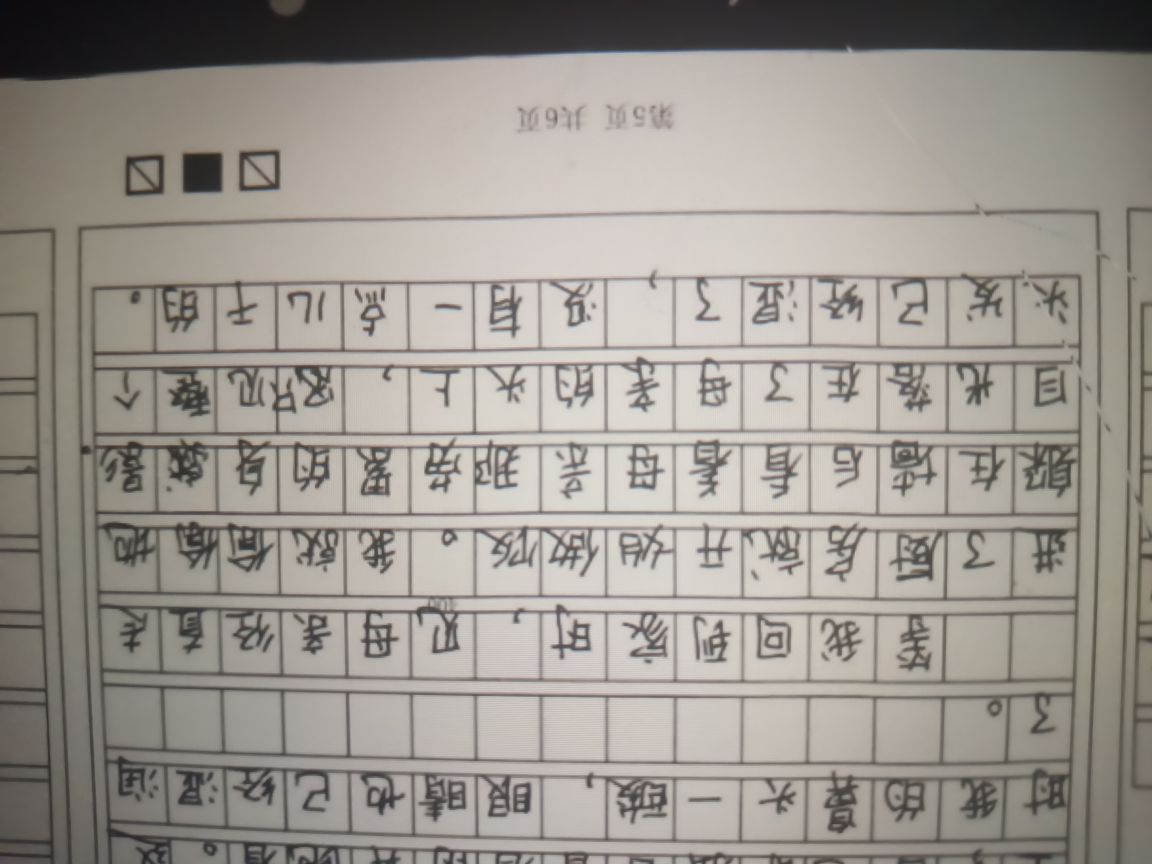 时我的鼻头一酸，眼睛也已经湿润
了。
等我回到家时，见母亲径直走
进了厨房就开始做饭。我就偷偷地
躲在墙后看着母亲那劳累的身影
目光落在了母亲的头上，只见整个
头发已经湿了，没有一点儿干的。
第5页 共6页